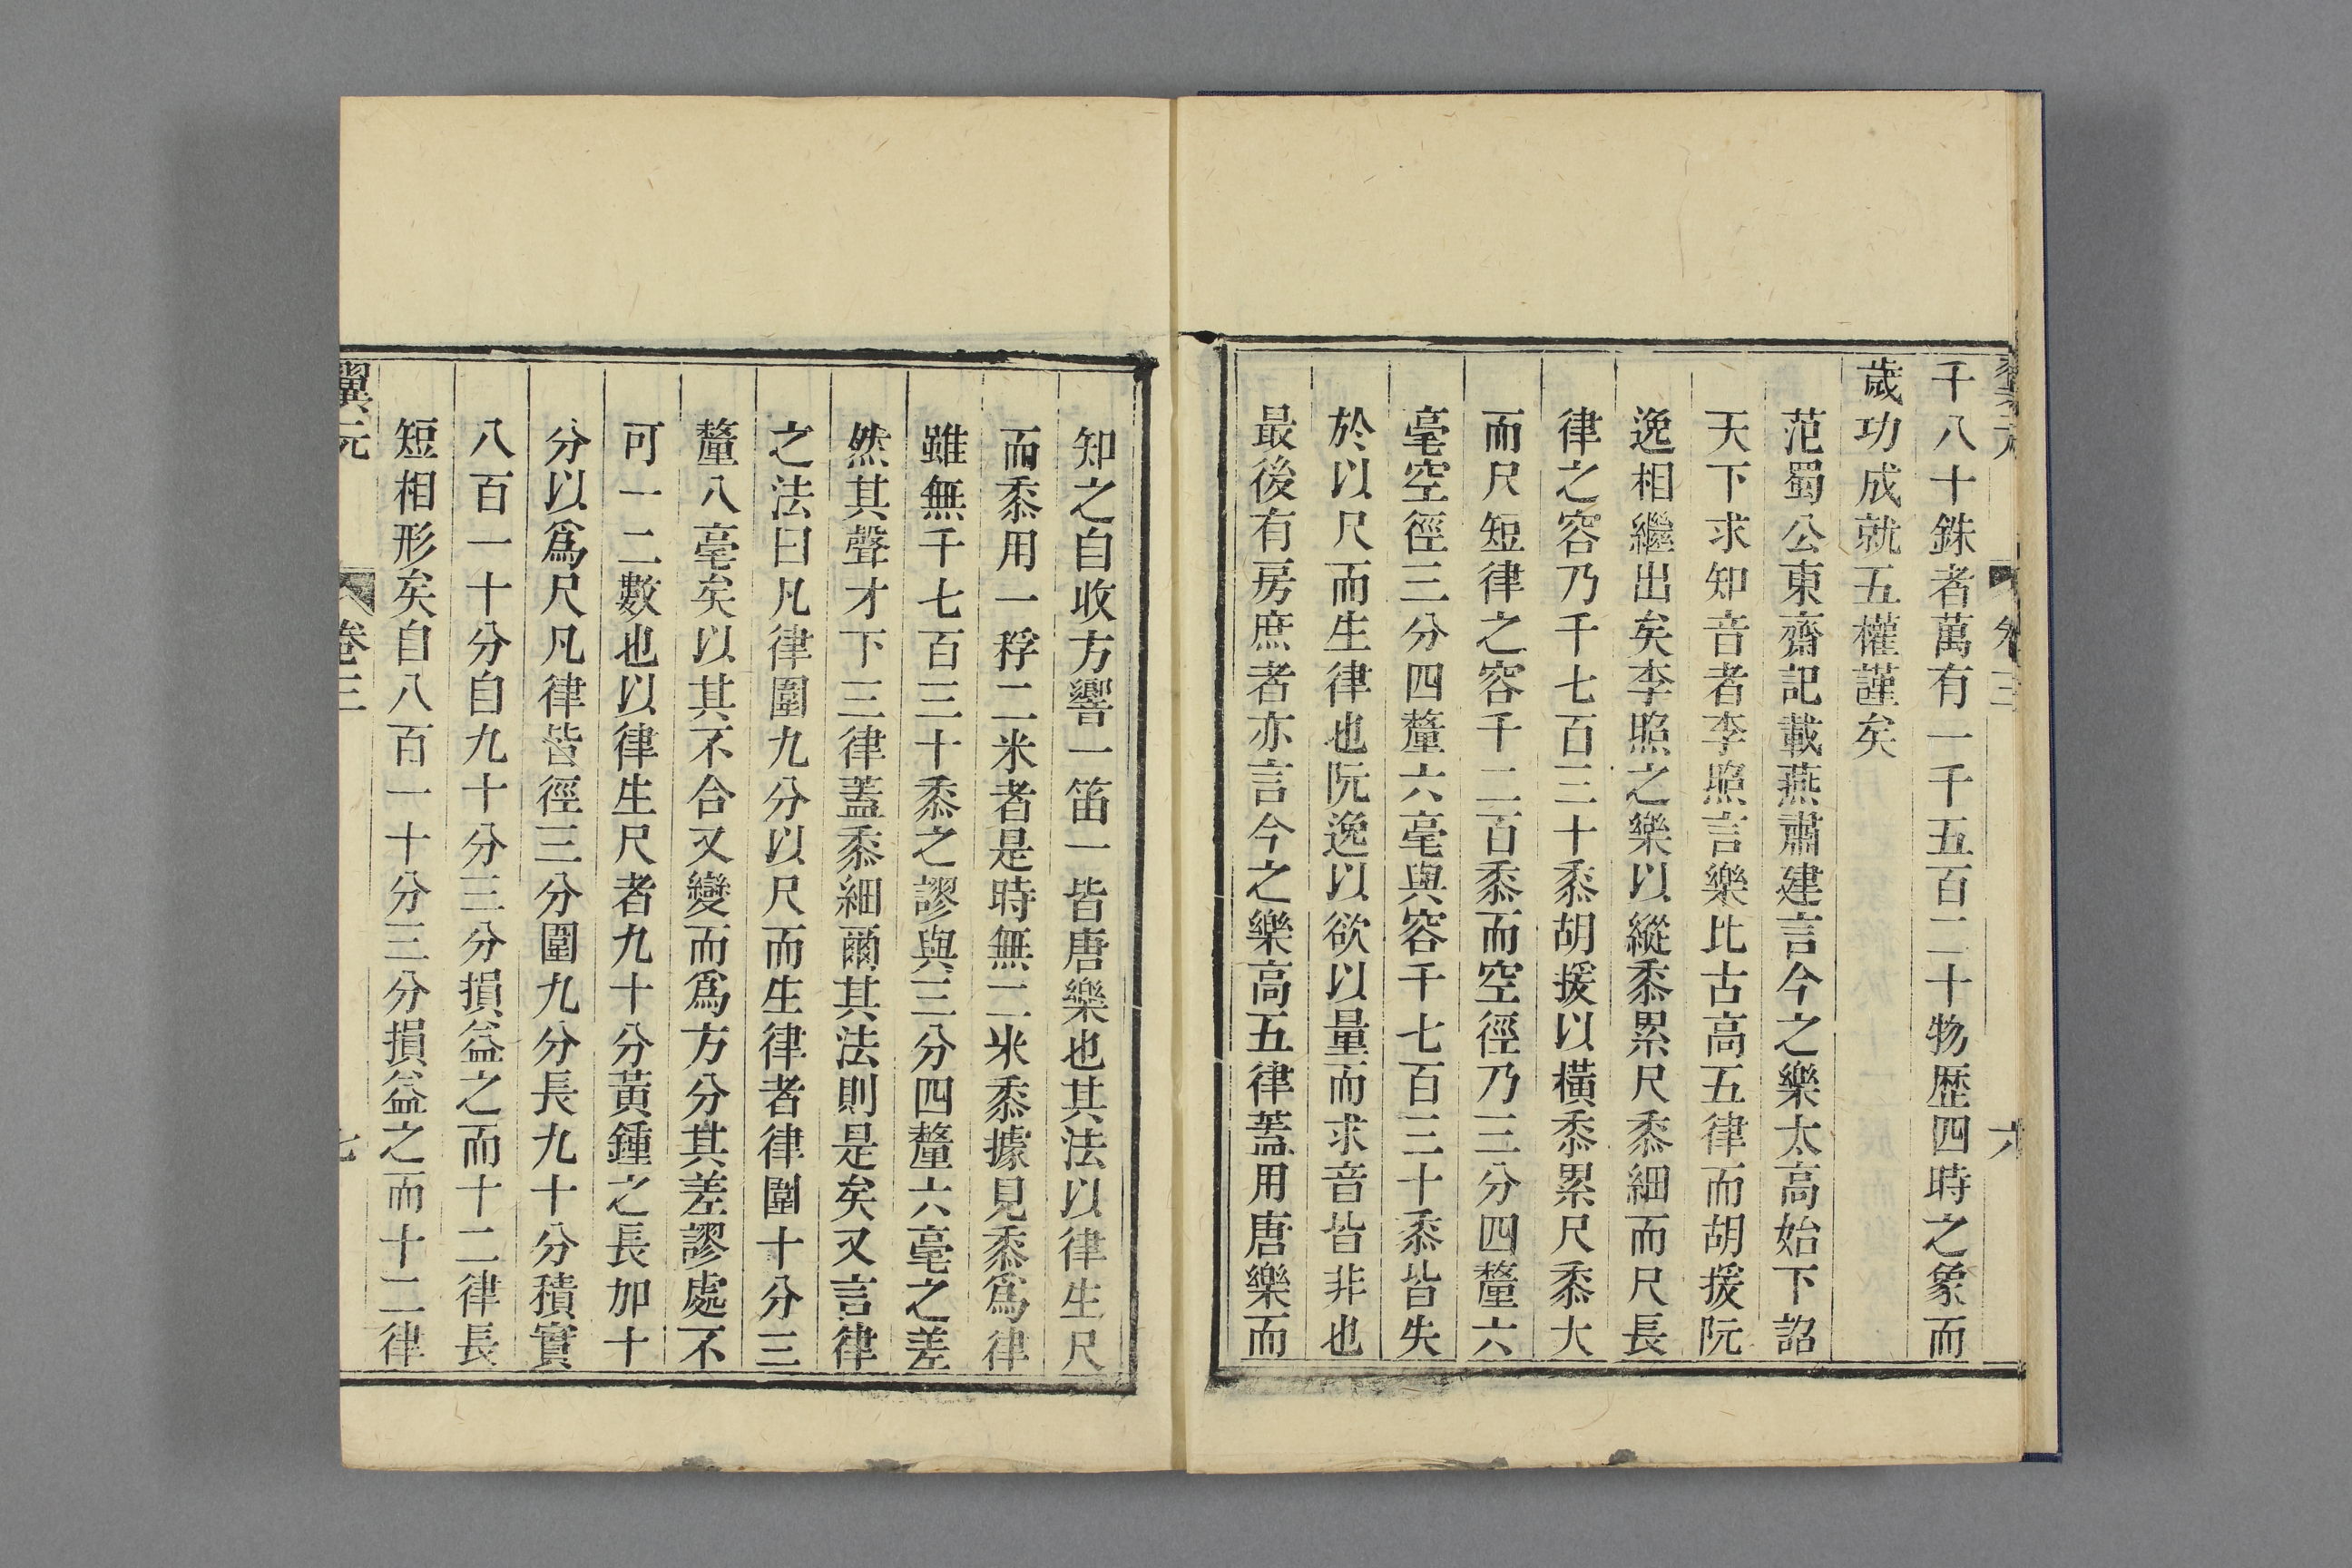 千八十銖者萬有一千五百二十物歴四時之象而
歲功成就五權謹矣
范蜀公東齋記載燕肅建言今之樂太高始下詔
天下求知音者李照言樂比古高五律而胡援阮
逸相繼出矣李照之樂以縱黍累尺黍細而尺長
律之容乃千七百三十黍胡援以橫黍累尺黍大
而尺短律之容千二百黍而空徑乃三分四釐六
毫空徑三分四釐六毫與容千七百三十黍皆失
於以尺而生律也阮逸以欲以量而求音皆非也
最後有房庶者亦言今之樂高五律蓋用唐樂而
知之自收方響一笛一皆唐樂也其法以律生尺
而黍用一稃二米者是時無二米黍據見黍爲律
雖無千七百三十黍之謬與三分四釐六毫之差
然其聲才下三律蓋黍細爾其法則是矣又言律
之法曰凡律圍九分以尺而生律者律圍十分三
釐八毫矣以其不合又變而爲方分其差謬處不
可一二數也以律生尺者九十分黃鍾之長加十
分以爲尺凡律皆徑三分圍九分長九十分積實
八百一十分自九十分三分損益之而十二律長
短相形矣自八百一十分三分損益之而十二律
翼元 卷三 七